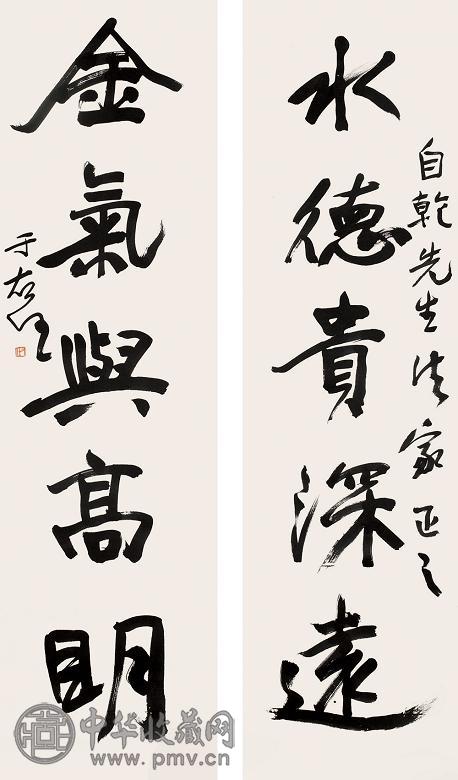 自乾先生法家正之
水德貴深遠
金氣與高明
于右任
中华收藏网
www.pmv.cn